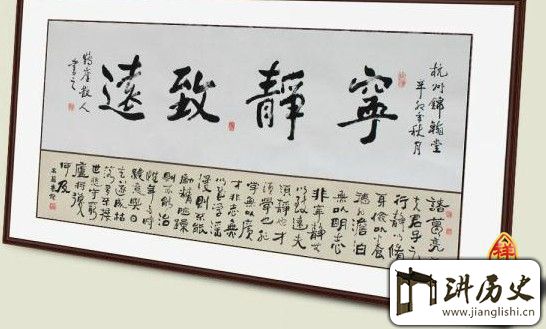 杭州錦翰堂
辛卯年秋月
寧靜致遠
散人
書之
諸葛亮
夫君子之
行靜以脩
身儉以養
德非澹泊
無以明志
非寧靜無
以致遠夫
學須靜也才
須學也非
學無以廣
才非志無
以成學淫
慢則不能
勵精險躁
則不能治
性年與時
馳意與日
去遂成枯
落多不接
世悲守窮
廬將復
何及
讲历史
www.jianglishi.cn